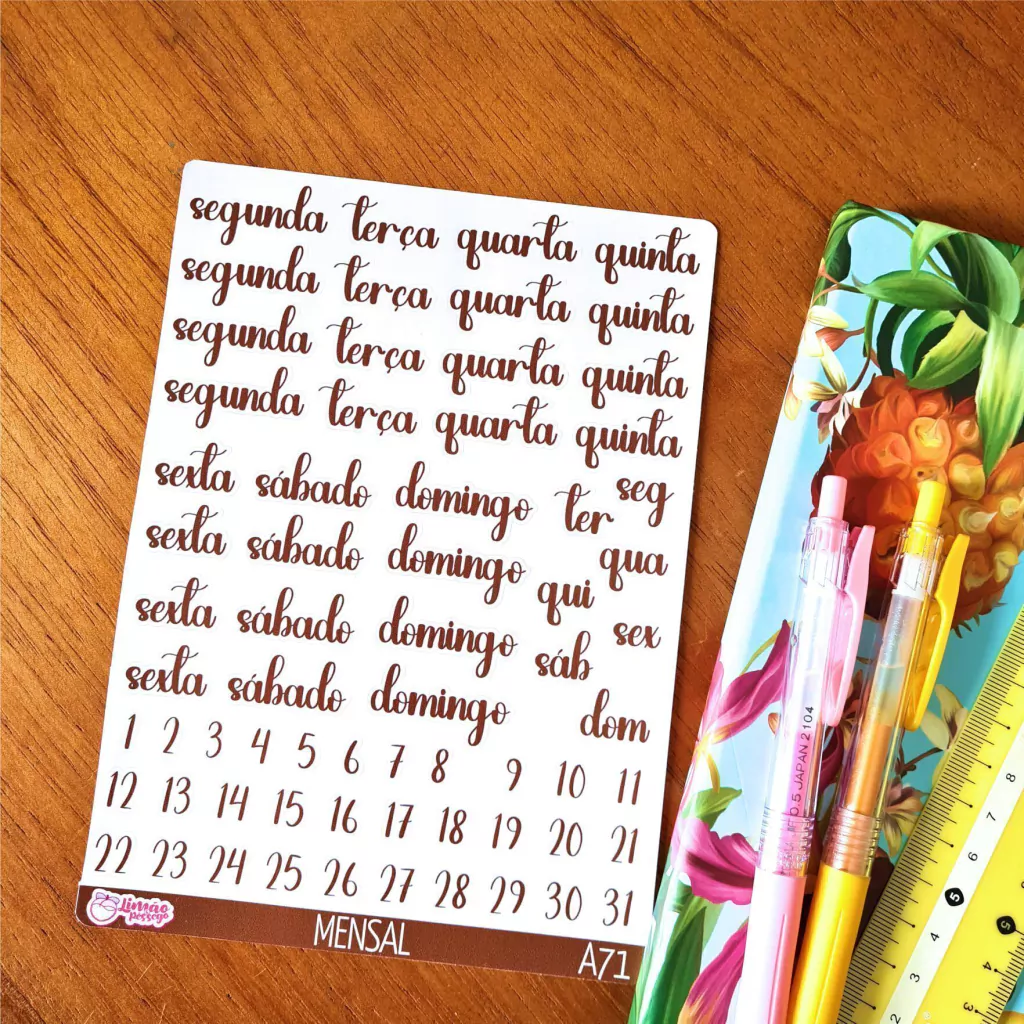 segunda terça quarta quinta
segunda terça quarta quinta
segunda terça quarta quinta
segunda terça quarta quinta
sexta sábado domingo ter seg
sexta sábado domingo qui qua
sexta sábado domingo sáb sex
sexta sábado domingo dom
1 2 3 4 5 6 7 8 9 10 11
12 13 14 15 16 17 18 19 20 21
22 23 24 25 26 27 28 29 30 31
Limão
pessego
MENSAL
A71
0.5 JAPAN 2104
8
7
6
5
4
3
2
5
4
3